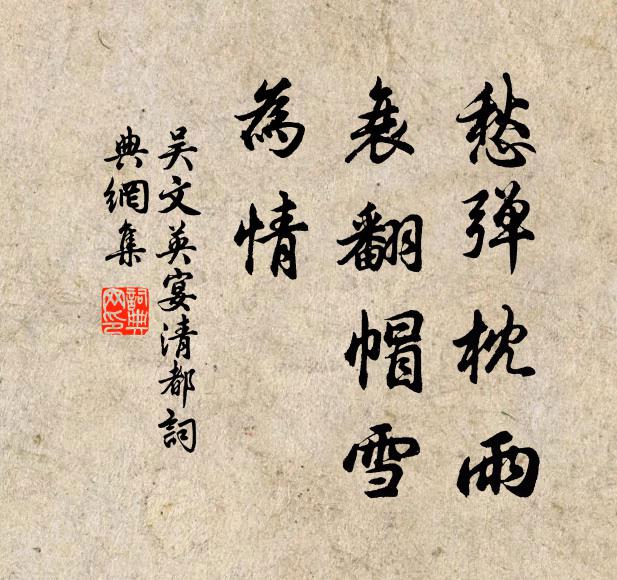 愁弹枕雨
衰翻帽雪
為情
吴文英宴清都詞
典網集
詞典
网印